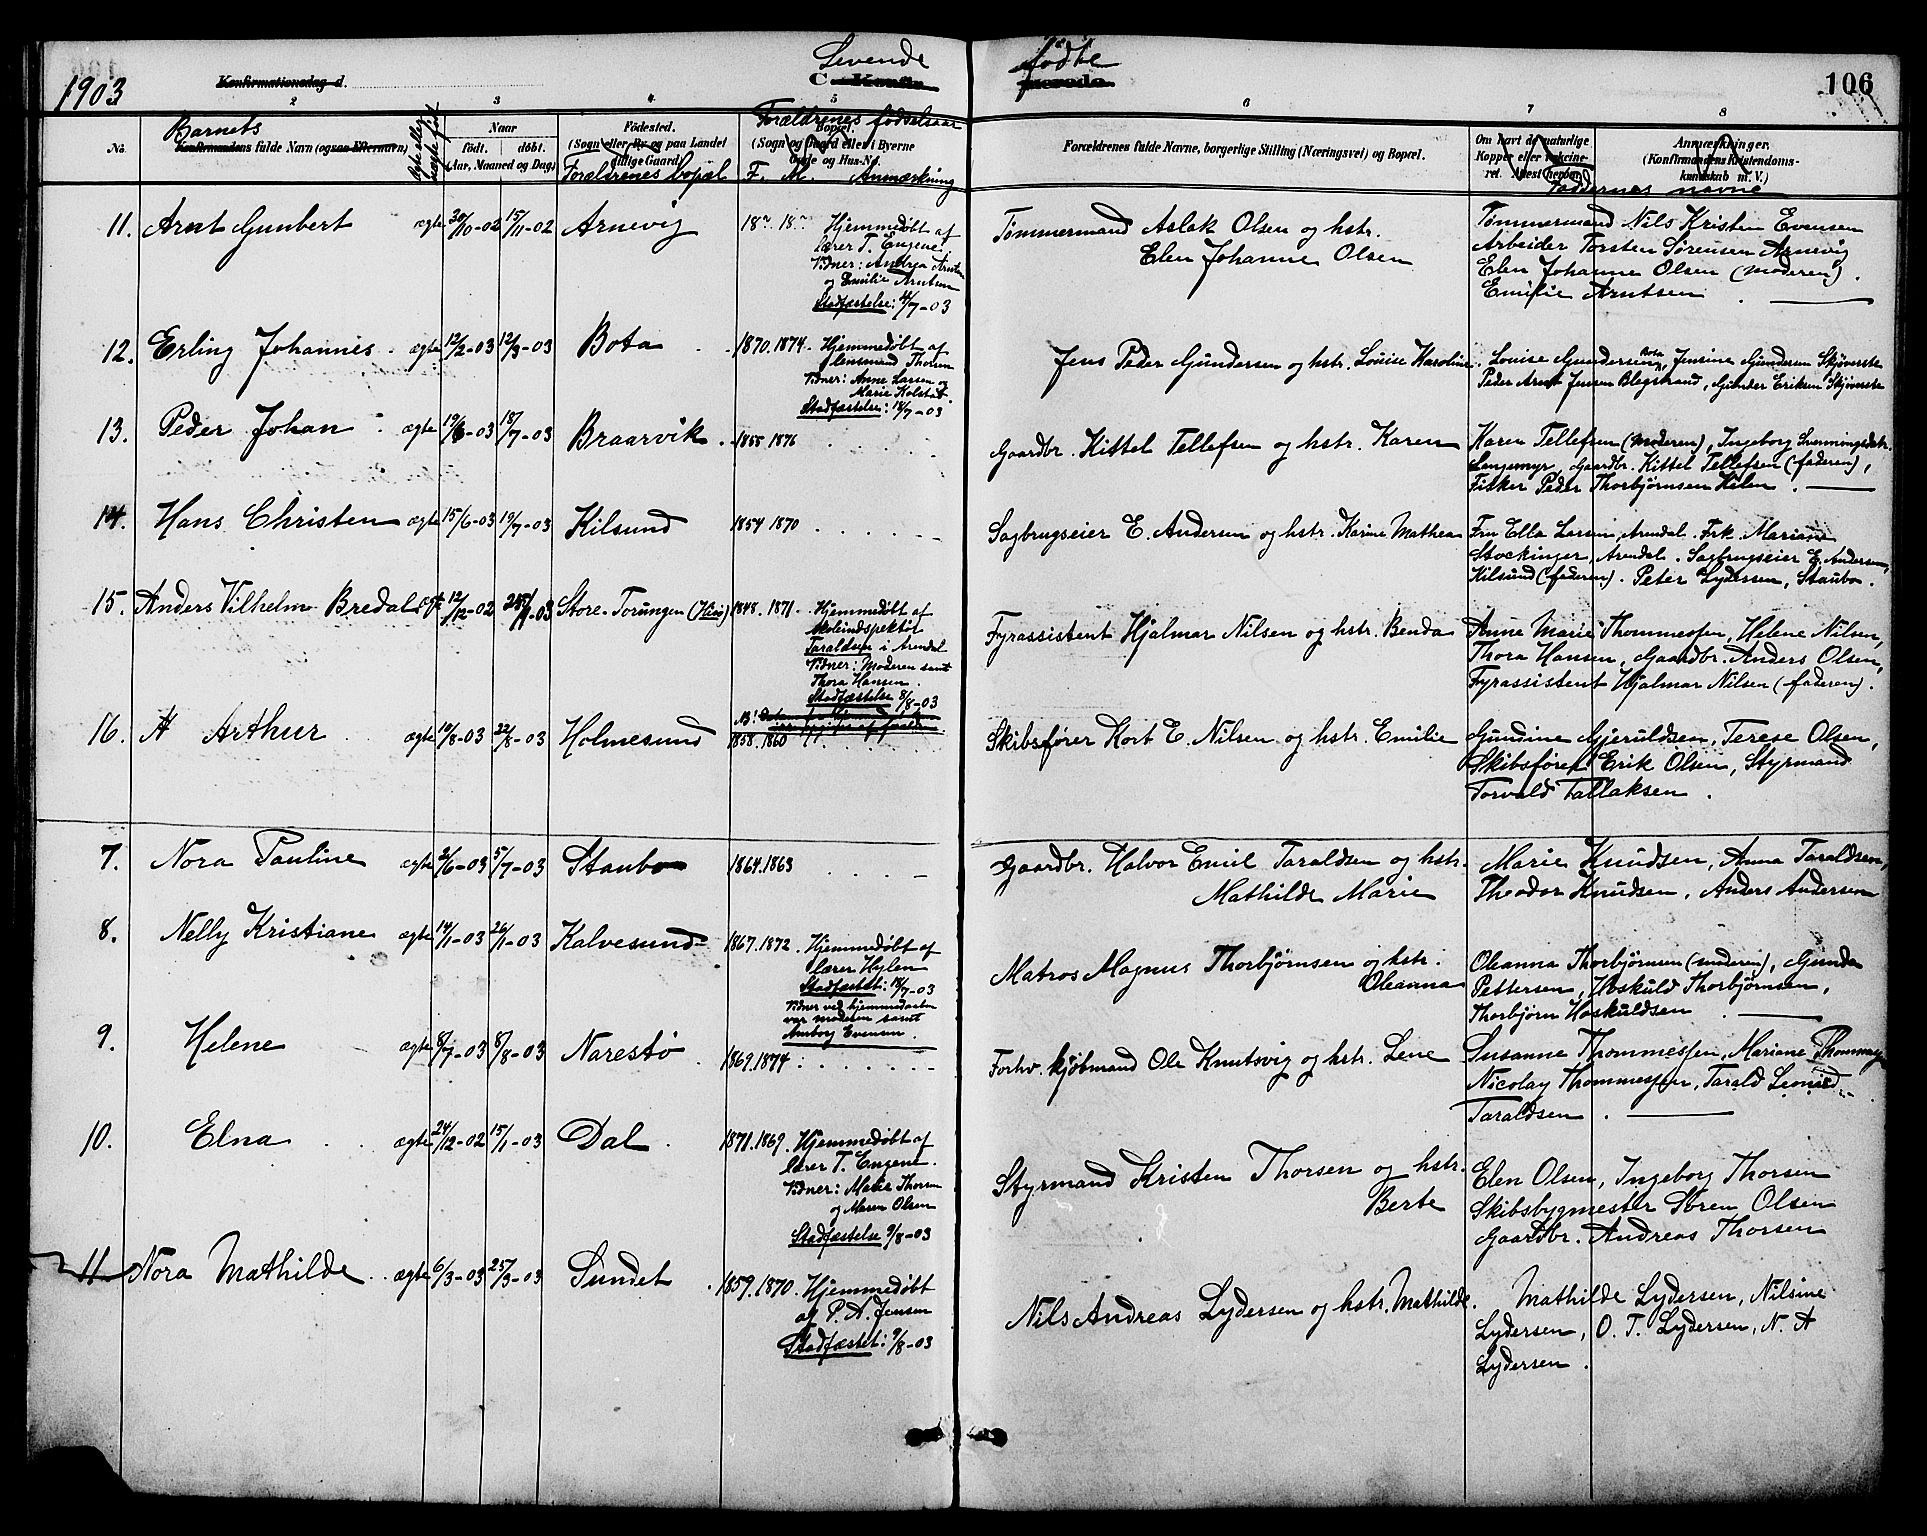 1903
Konfirmationsdag d.
Levende
fødte
106
2 3 4 5 6 7 8
No.
Barnets
Konfirmandens fulde Navn (ogsaa Efternavn)
Naar
født. døbt.
(Aar, Maaned og Dag)
Fødested.
(Sogn eller By og paa Landet
tillige Gaard)
Forældrenes bopæl
Forældrenes fødselsaar
Bopæl.
(Sogn og Gaard eller i Byerne
Gade og Hus-No.
F. M. Anmærkning
Forældrenes fulde Navne, borgerlige Stilling (Næringsvei) og Bopæl.
Om havt de naturlige
Kopper eller vakcine-
ret. Attest herom.
Anmærkninger.
(Konfirmandens Kristendoms-
kundskab m. V.)
Faddernes navne
11. Arnt Gunbert ægte 30/10-02 15/11-02 Arnevig
Hjemmedøbt af
lærer T. Engene
Vidner: Andrea
og Emilie Arntsen
Stadfæstelse: 4/7-03
Tømmermand Aslak Olsen og hstr.
Elen Johanne Olsen
Tømmermand Nils Kristen Evensen
Arbeider Torsten Sørensen Arnevig
Elen Johanne Olsen (moderen).
Emilie Arntsen
12. Erling Johannes ægte 12/2-03 12/3-03 Bota 1870. 1874.
Hjemmedøbt af
lensmand Thorsen
Vidner: Anne Larsen og
Marie Kolstad
Stadfæstelse: 18/7-03
Jens Peder Gundersen og hstr. Louise Karoline.
Louise Gundersen Bota, Jensine Gundersen Skjøverstø
Peder Arnt Jensen Blegstrand, Gunder Eriksen Skjøverstø
13. Peder Johan ægte 19/6-03 18/7-03 Braarvik. 1855 1876
Gaardbr. Kittel Tellefsen og hstr. Karen
Karen Tellefsen (moderen), Ingeborg Svenningsdtr.
Langemyr, Gaardbr. Kittel Tellefsen (faderen),
Fisker Peder Thorbjørnsen Kilen.
14. Hans Christen ægte 15/6-03 19/7-03 Kilsund 1854 1870
Sagbrugseier E. Andersen og hstr. Karine Mathea
Fru Ella Larsen, Arendal. Frk. Mariane
Stockinger, Arendal. Sagbrugseier E. Andersen,
Kilsund (faderen). Peter Lydersen, Staubo.
15. Anders Vilhelm Bredal ægt 12/12-02 -03 Store-Torungen (Hisø) 1848. 1871.
Hjemmedøbt af
skoleindspektør
Taraldsen i Arendal
Vidner: Moderen samt
Thora Hansen.
Stadfæstelse 8/8-03
Fyrassistent Hjalmar Nilsen og hstr. Benda
Anne Marie Thommessen, Helene Nilsen,
Thora Hansen, Gaardbr. Anders Olsen,
Fyrassistent Hjalmar Nilsen (faderen).
16. A Arthur ægte 10/8-03 22/8-03 Holmesund 1858. 1860
Skibsfører Kort E. Nilsen og hstr. Emilie
Gundine Gjeruldsen, Terese Olsen,
Skibsfører Erik Olsen, Styrmand
Torvald Tallaksen.
7. Nora Pauline ægte 2/6-03 5/7-03 Staubo 1864. 1863
Gaardbr. Halvor Emil Taraldsen og hstr.
Mathilde Marie
Marie Knudsen, Anna Taraldsen,
Theodor Knudsen, Anders Andersen
8. Nelly Kristiane ægte 14/1-03 26/1-03 Kalvesund 1867. 1872.
Hjemmedøbt af
lærer Hylen
Stadfæstet: 18/7-03
Vidner ved hjemmedaaben
var moderen samt
Amborg Evensen.
Matros Magnus Thorbjørnsen og hstr.
Oleanna
Oleanna Thorbjørnsen (moderen), Gunda
Pettersen, Høskuld Thorbjørnsen,
Thorbjørn Høskuldsen
9. Helene ægte 8/7-03 8/8-03 Narestø 1869. 1874
Forhv. kjøbmand Ole Knutsvig og hstr. Lene
Susanne Thommessen, Mariane
Nicolay Thommessen, Tarald Leonard
Taraldsen.
10. Elna ægte 24/12-02 15/1-03 Dal. 1871. 1869.
Hjemmedøbt af
lærer T. Engene.
Vidner: Marie Thorsen
og Maren Olsen
Stadfæstelse 9/8-03
Styrmand Kristen Thorsen og hstr.
Berte
Elen Olsen, Ingeborg Thorsen
Skibsbygmester Søren Olsen
Gaardbr. Andreas Thorsen
11 Nora Mathilde ægte 6/3-03 25/3-03 Sundet 1859. 1870.
Hjemmedøbt
af P. A. Jensen
Stadfæstet: 9/8-03
Nils Andreas Lydersen og hstr. Mathilde.
Mathilde Lydersen, Nilsine
Lydersen, O. T. Lydersen, N. A
Lydersen.